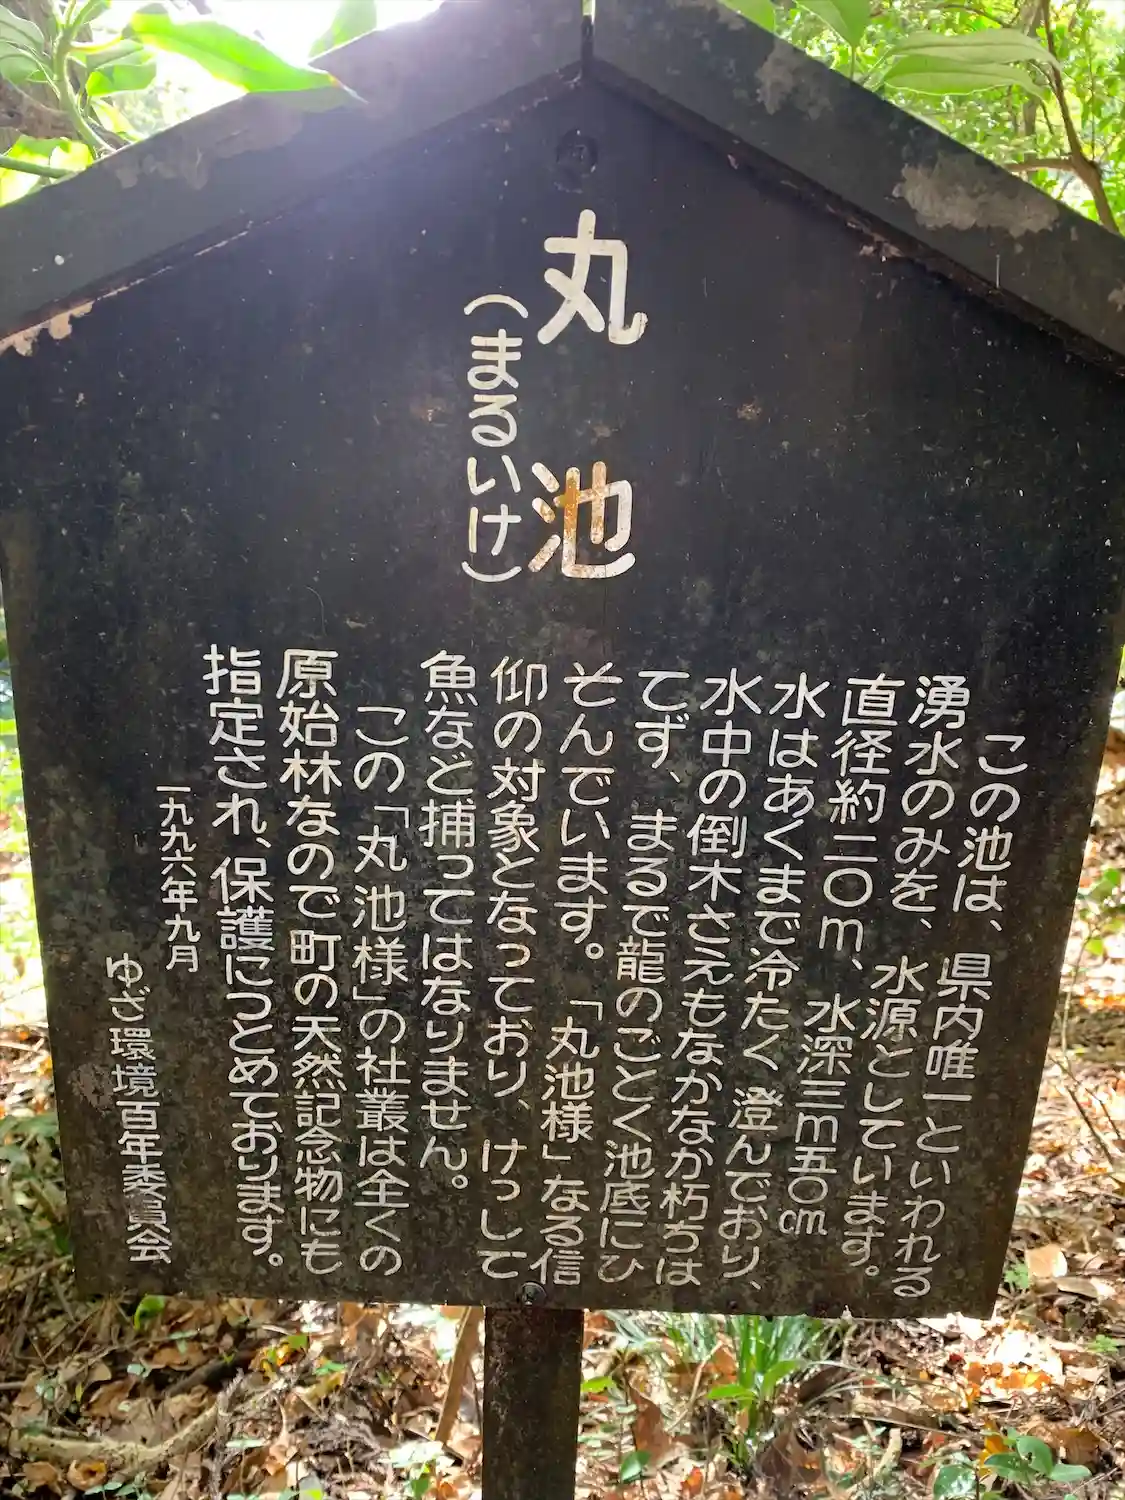 丸池
（まるいけ）
この池は、県内唯一といわれる
湧水のみを、水源としています。
直径約二〇m、水深三m五〇cm
水はあくまで冷たく澄んでおり、
水中の倒木さえもなかなか朽ちは
てず、まるで龍のごとく池底にひ
そんでいます。「丸池様」なる信
仰の対象となっており、けっして
魚など捕ってはなりません。
この「丸池様」の社叢は全くの
原始林なので町の天然記念物にも
指定され、保護につとめております。
一九九六年九月
ゆざ環境百年委員会